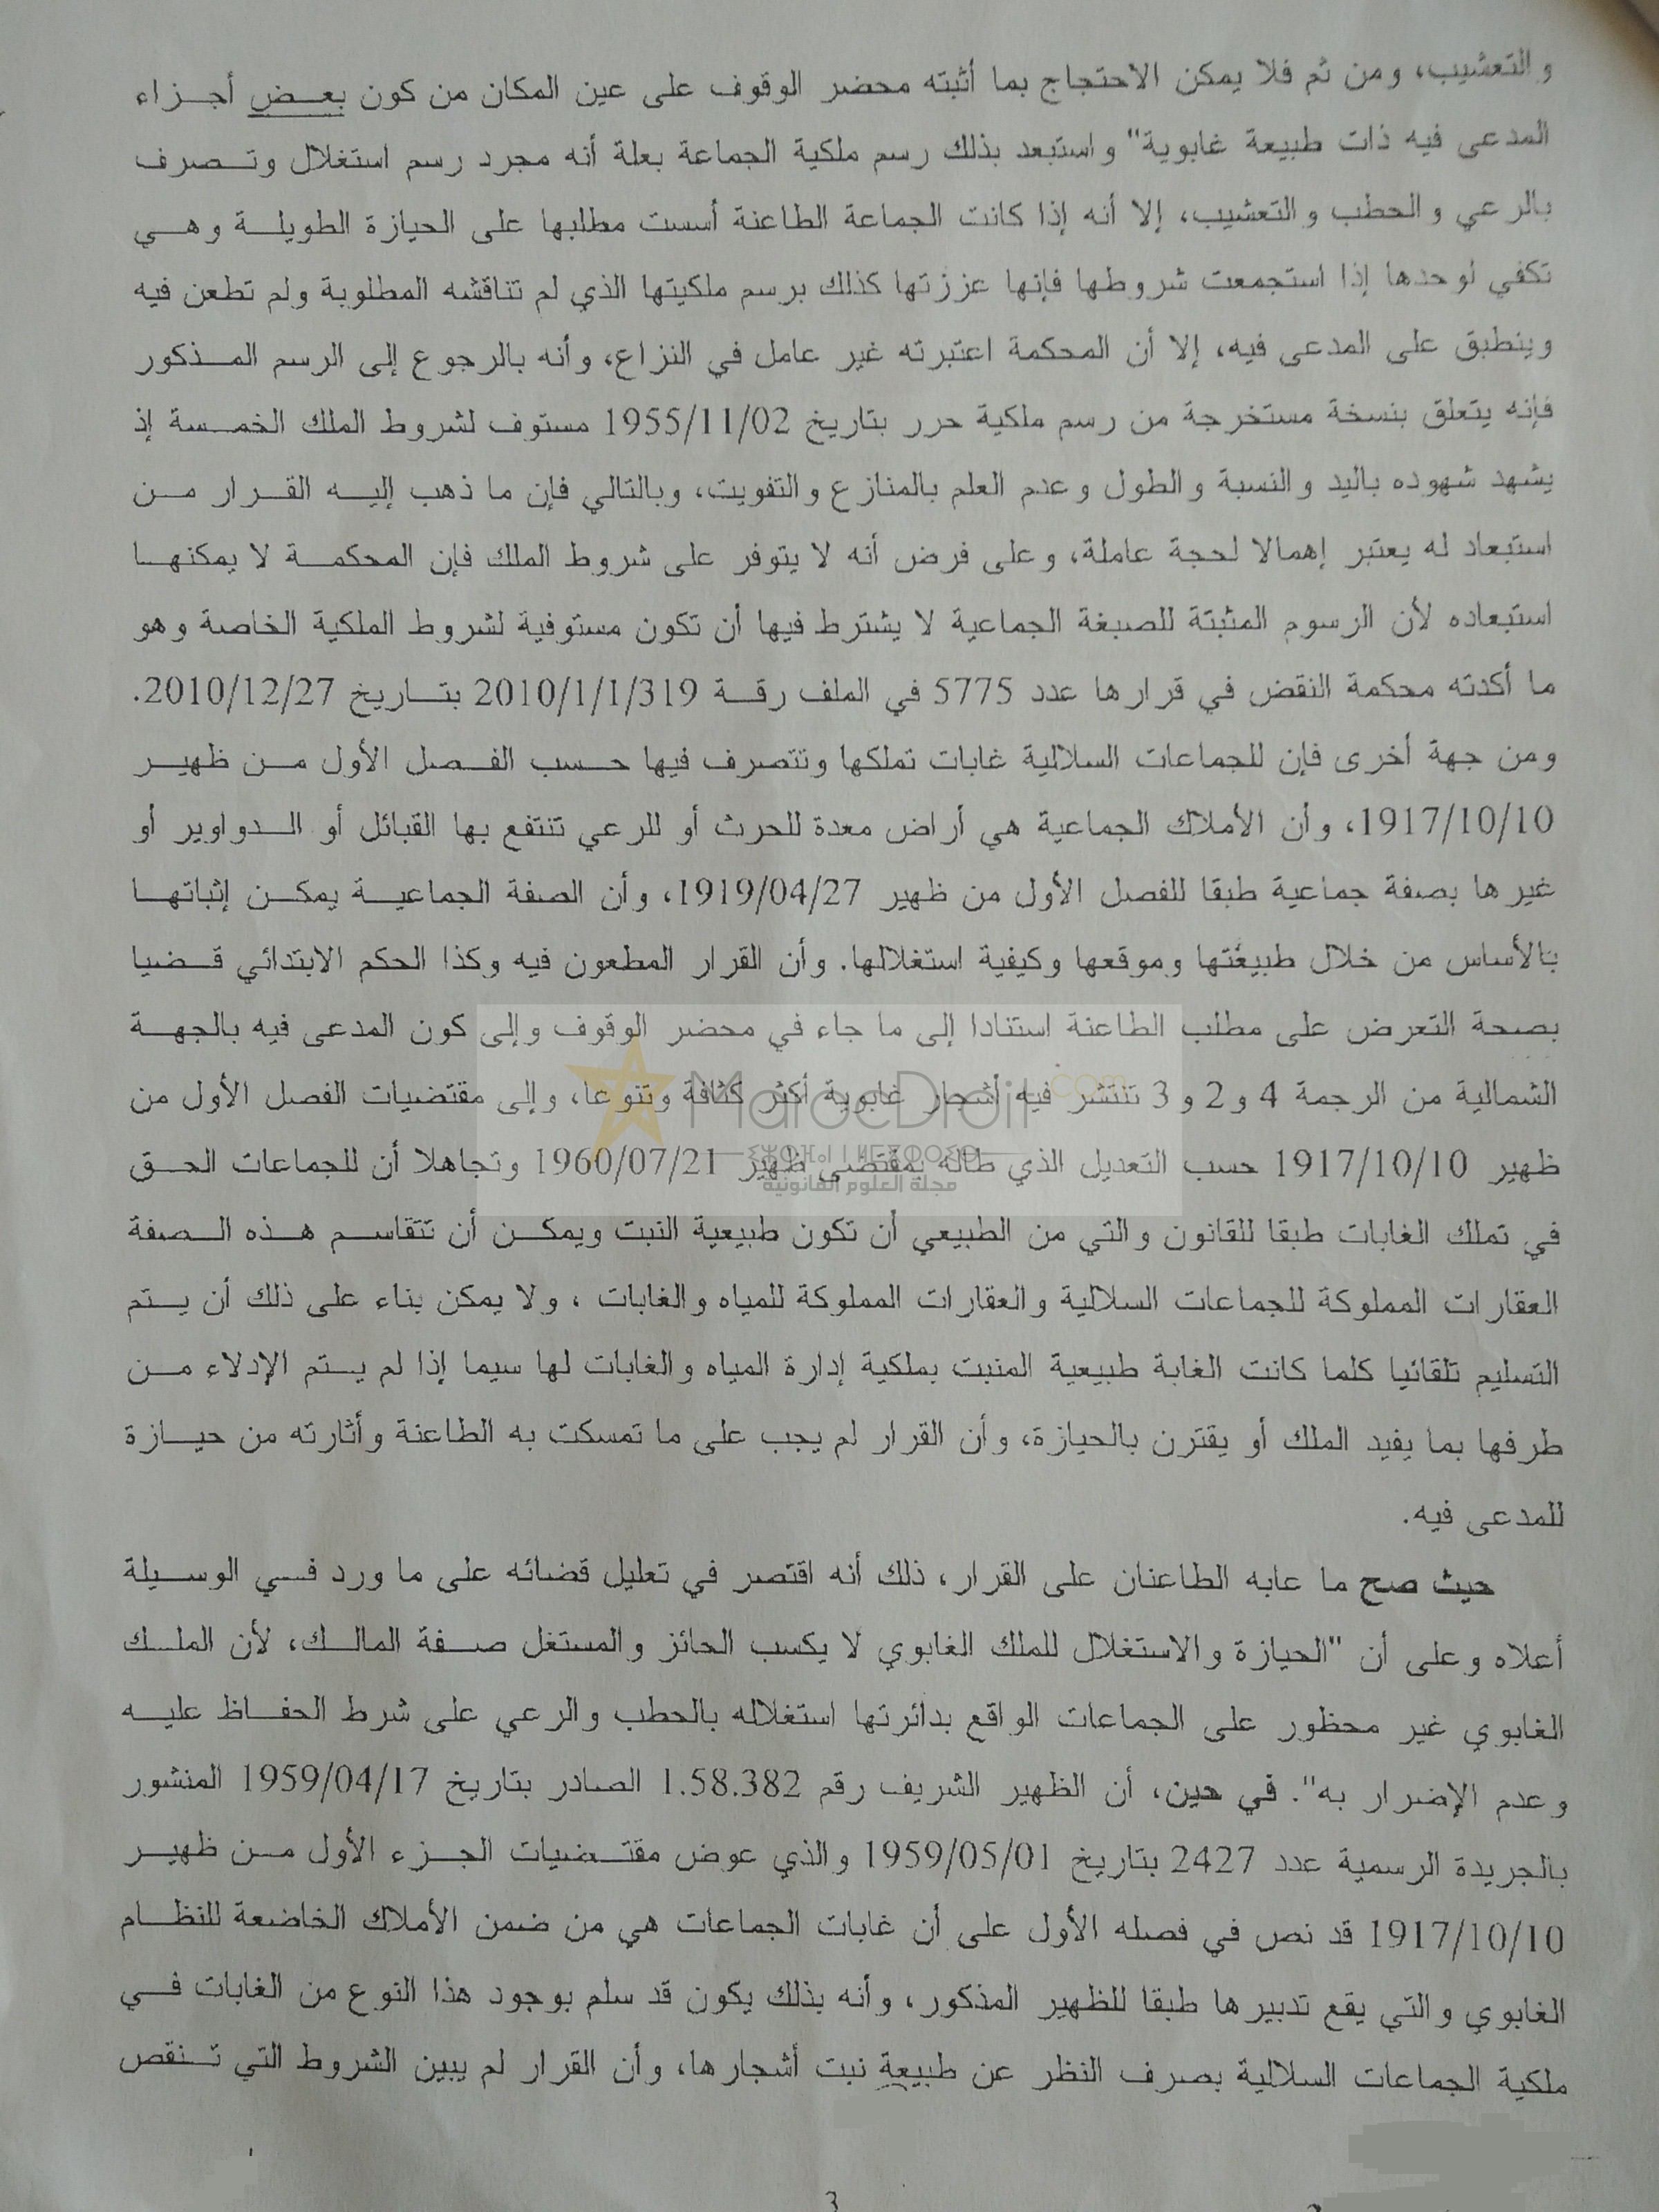 والتعشيب، ومن ثم فلا يمكن الاحتجاج بما أثبته محضر الوقوف على عين المكان من كون بعض أجزاء
المدعى فيه ذات طبيعة غابوية" واستبعد بذلك رسم ملكية الجماعة بعلة أنه مجرد رسم استغلال وتصرف
بالرعي والحطب والتعشيب، إلا أنه إذا كانت الجماعة الطاعنة أسست مطلبها على الحيازة الطويلة وهي
تكفي لوحدها إذا استجمعت شروطها فإنها عززتها كذلك برسم ملكيتها الذي لم تناقشه المطلوبة ولم تطعن فيه
وينطبق على المدعى فيه، إلا أن المحكمة اعتبرته غير عامل في النزاع، وأنه بالرجوع إلى الرسم المذكور
فإنه يتعلق بنسخة مستخرجة من رسم ملكية حرر بتاريخ 1955/11/02 مستوف لشروط الملك الخمسة إذ
يشهد شهوده باليد والنسبة والطول وعدم العلم بالمنازع والتفويت، وبالتالي فإن ما ذهب إليه القرار من
استبعاد له يعتبر إهمالا لحجة عاملة، وعلى فرض أنه لا يتوفر على شروط الملك فإن المحكمة لا يمكنها
استبعاده لأن الرسوم المثبتة للصبغة الجماعية لا يشترط فيها أن تكون مستوفية لشروط الملكية الخاصة وهو
ما أكدته محكمة النقض في قرارها عدد 5775 في الملف رقة 2010/1/1/319 بتاريخ 2010/12/27.
ومن جهة أخرى فإن للجماعات السلالية غابات تملكها وتتصرف فيها حسب الفصل الأول من ظهير
1917/10/10، وأن الأملاك الجماعية هي أراض معدة للحرث أو للرعي تنتفع بها القبائل أو الدواوير أو
غيرها بصفة جماعية طبقا للفصل الأول من ظهير 1919/04/27، وأن الصفة الجماعية يمكن إثباتها
بالأساس من خلال طبيعتها وموقعها وكيفية استغلالها. وأن القرار المطعون فيه وكذا الحكم الابتدائي قضيا
بصحة التعرض على مطلب الطاعنة استنادا إلى ما جاء في محضر الوقوف وإلى كون المدعى فيه بالجهة
الشمالية من الرجمة 4 و2 و3 تنتشر فيه أشجار غابوية أكثر كثافة وتنوعا، وإلى مقتضيات الفصل الأول من
ظهير 1917/10/10 حسب التعديل الذي طاله بمقتضى ظهير 1960/07/21 وتجاهلا أن للجماعات الحق
في تملك الغابات طبقا للقانون والتي من الطبيعي أن تكون طبيعية النبت ويمكن أن تتقاسم هذه الصفة
العقارات المملوكة للجماعات السلالية والعقارات المملوكة للمياه والغابات ، ولا يمكن بناء على ذلك أن يتم
التسليم تلقائيا كلما كانت الغابة طبيعية المنبت بملكية إدارة المياه والغابات لها سيما إذا لم يتم الإدلاء من
طرفها بما يفيد الملك أو يقترن بالحيازة، وأن القرار لم يجب على ما تمسكت به الطاعنة وأثارته من حيازة
للمدعى فيه.
حيث صح ما عابه الطاعنان على القرار، ذلك أنه اقتصر في تعليل قضائه على ما ورد في الوسيلة
أعلاه وعلى أن "الحيازة والاستغلال للملك الغابوي لا يكسب الحائز والمستغل صفة المالك، لأن الملك
الغابوي غير محظور على الجماعات الواقع بدائرتها استغلاله بالحطب والرعي على شرط الحفاظ عليه
وعدم الإضرار به". في حين، أن الظهير الشريف رقم 1.58.382 الصادر بتاريخ 1959/04/17 المنشور
بالجريدة الرسمية عدد 2427 بتاريخ 1959/05/01 والذي عوض مقتضيات الجزء الأول من ظهير
1917/10/10 قد نص في فصله الأول على أن غابات الجماعات هي من ضمن الأملاك الخاضعة للنظام
الغابوي والتي يقع تدبيرها طبقا للظهير المذكور، وأنه بذلك يكون قد سلم بوجود هذا النوع من الغابات في
ملكية الجماعات السلالية بصرف النظر عن طبيعة نبت أشجارها، وأن القرار لم يبين الشروط التي تنقص
3
MarocDroit.com
مجلة العلوم القانونية